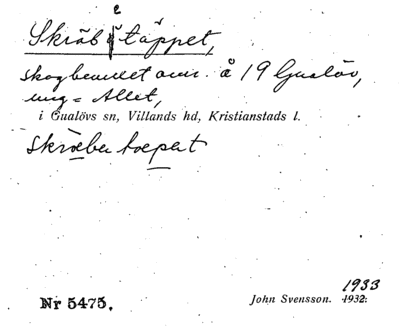 Skräbetäppet,
skogbevuxet omr. å 19 Gualöv,
i Gualövs sn, Villands hd, Kristianstads l.
Nr 5475.
John Svensson. 1932. 1933